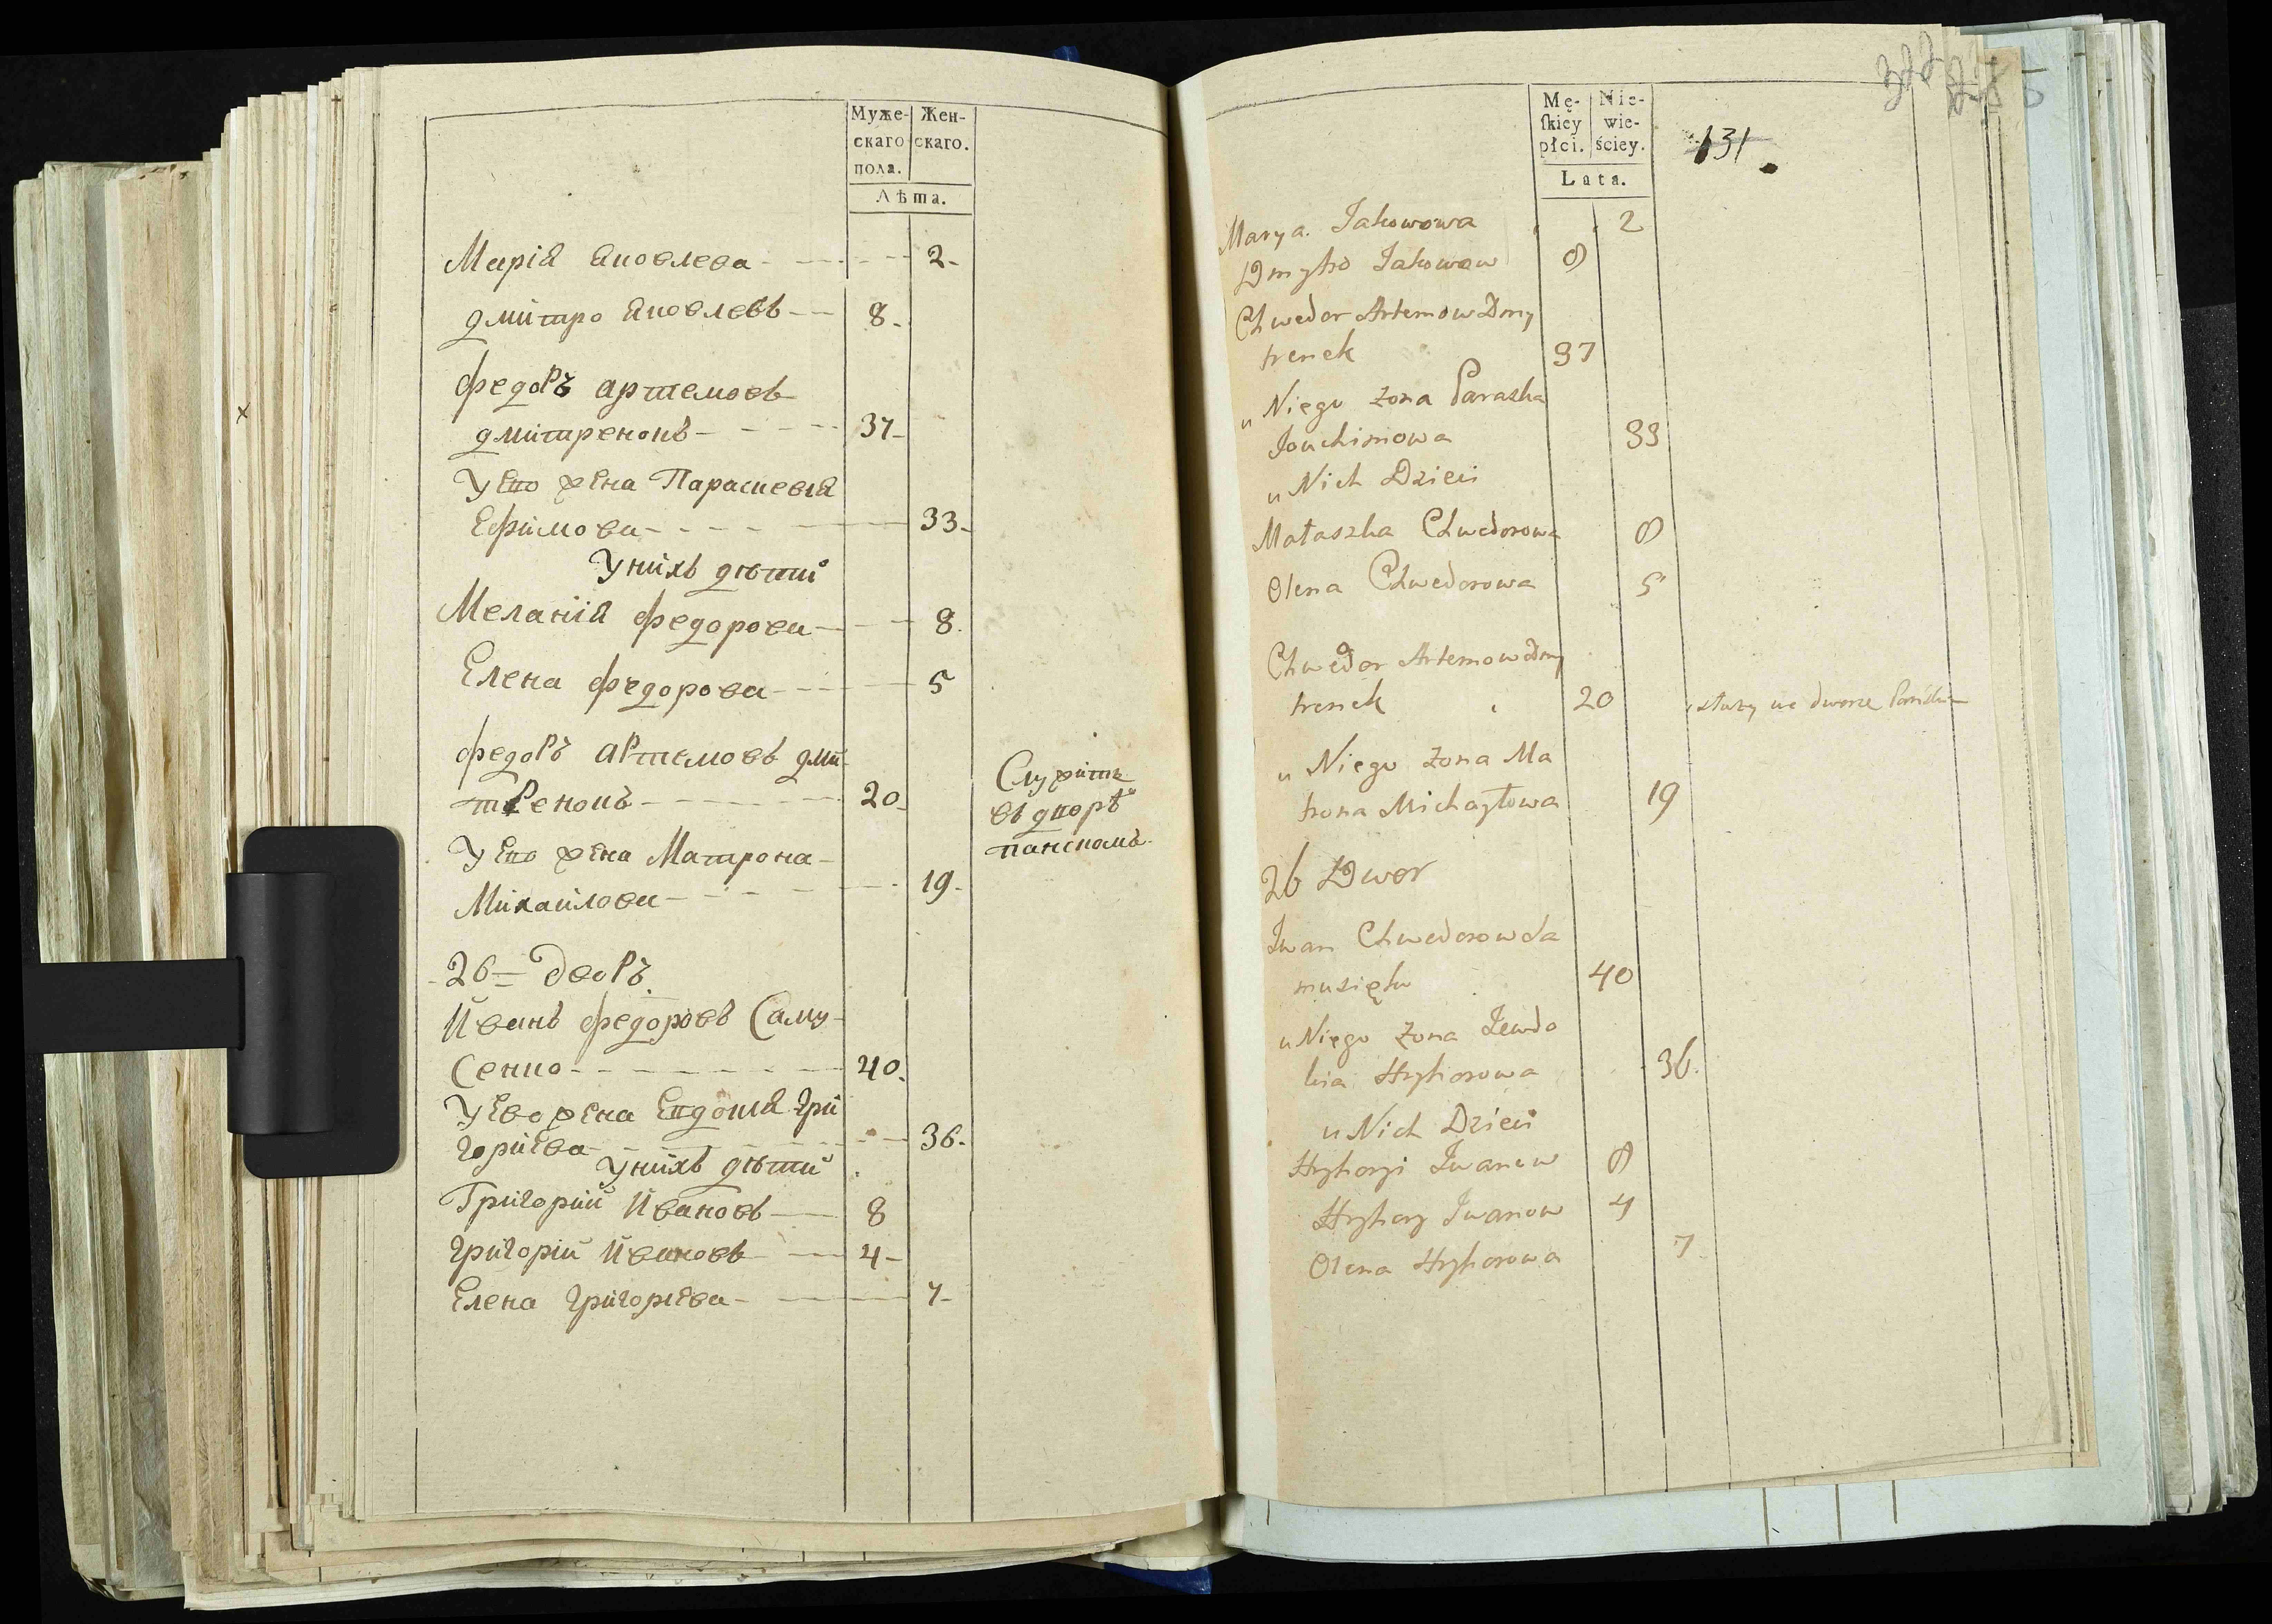 Муже-
скаго
пола.
Жен-
скаго.
Лѣта.
Марія Яковлева 2
дмитро Яковлевъ 8
федоръ артемовъ
дмитренокъ 37
У его жена Параскевія
Ефимова 33
У нихъ дѣти
Меланіія федорова 8
Елена федорова 5
федоръ артемовъ дми
тренокъ 20
Служить
въ дворѣ
панскомъ
У его жена Матрона
Михайлова 19
26 = дворъ
Иванъ федоровъ Саму
Сенко 40
У его жена Евдокія гри
горіева 36
У нихъ дѣти
Григорій Ивановъ 8
григорій Ивановъ 4
Елена григоріева 7
Mę-
ſkiey
płci.
Nie-
wie-
ściey.
Lata.
131
Marya Jakowowa 2
Dmytro Jakowow 8
Chwedor Artemow Dmy
trenek 37
u Niego Zona Paraska
Jouchimowa 33
u Nich Dzieci
Małaszka Chwedorowa 8
Olena Chwedorowa 5
Chwedor Artemow Dmy
trenek 20 służy we dworze
u Niego Zona Ma
trona Michayłowa 19
26 Dwor
Iwan Chwedorow Sa
musięko 40
u Niego Zona Jewdo
kia Hryhorowa 36
u Nich Dzieci
Hryhoryi Iwanow 8
Hryhory Iwanow 4
Olena Hryhorowa 7